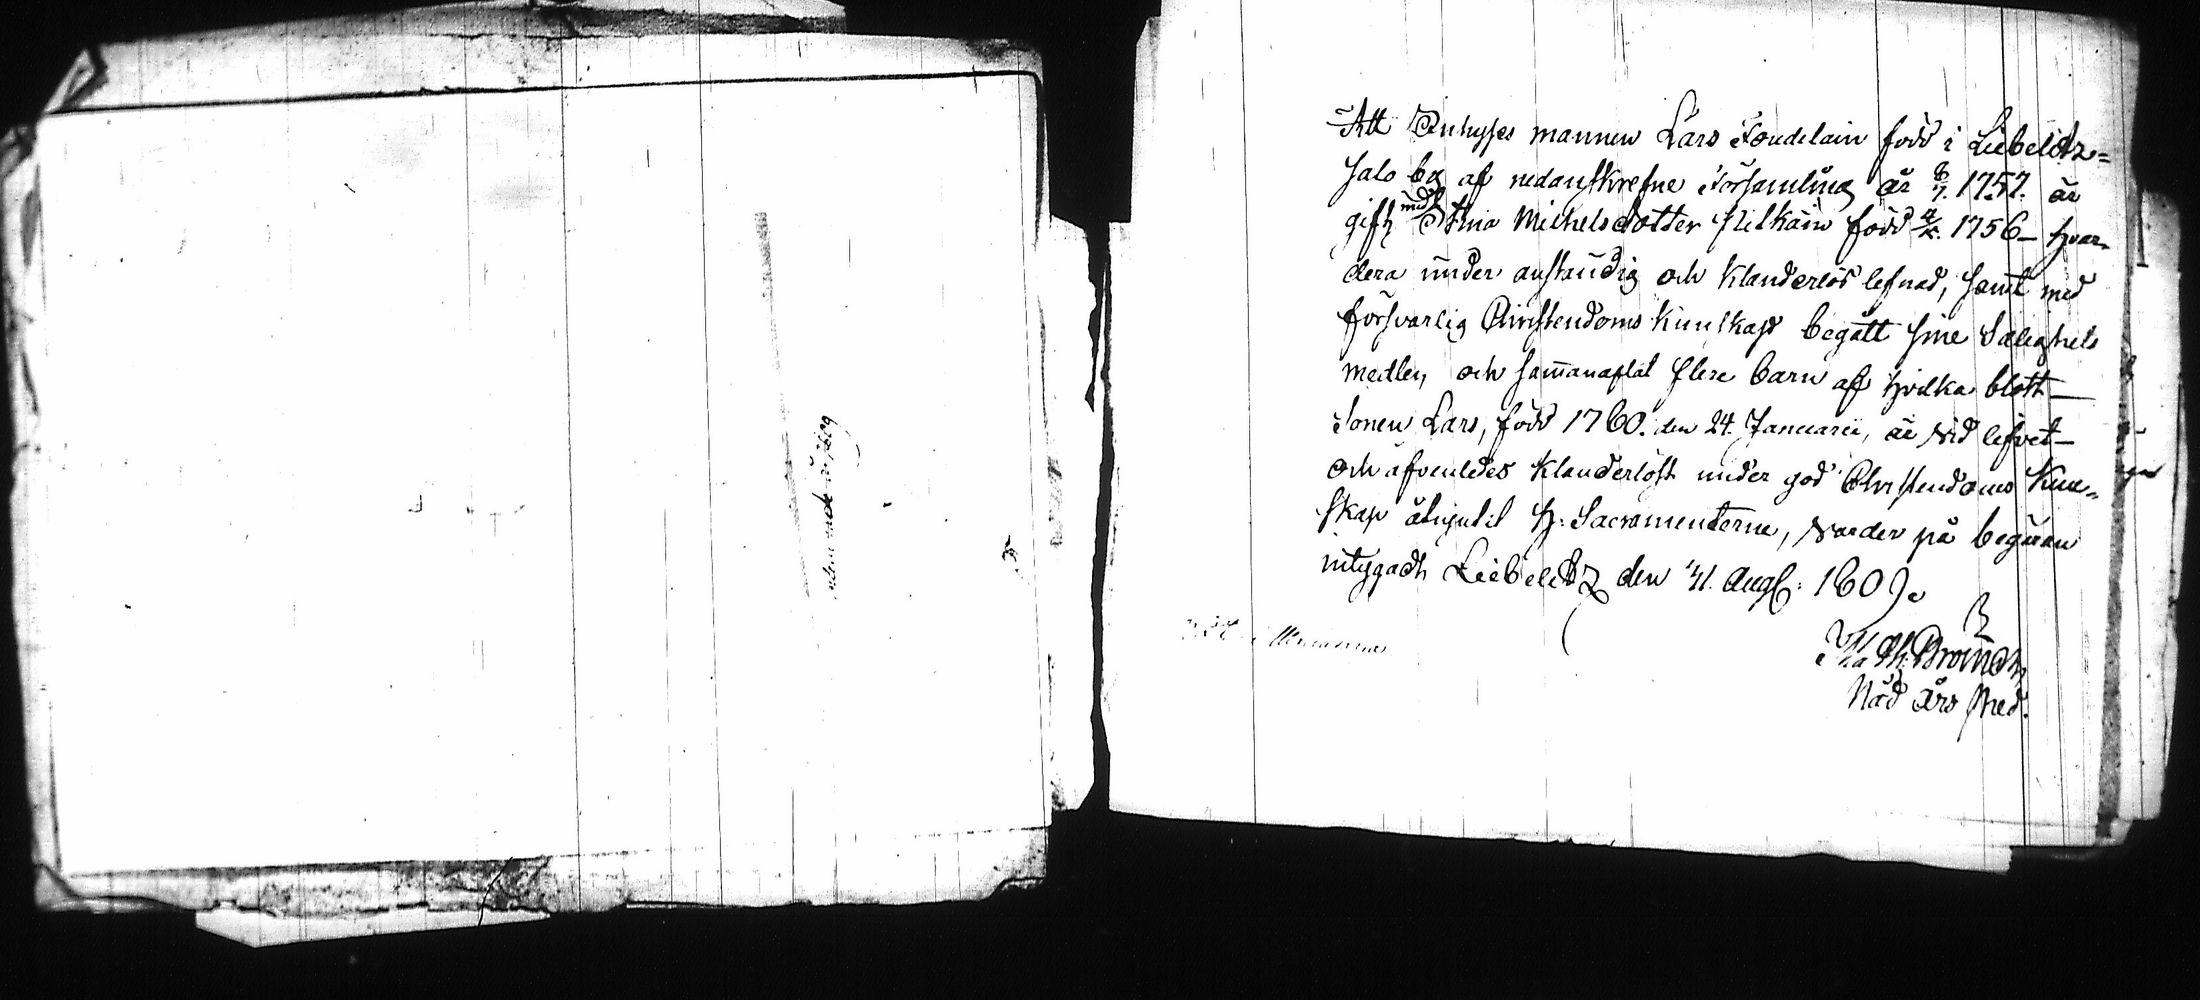 Att Inhyses mannen Lars Toudelain född i Liebelitz=
salo by af nedanskrefne Församling år 6/7. 1757. är
gift med Stina Michelsdotter född 1756 – hvar
dera under anständig och klanderlös lefnad, samt med
försvarlig Christendoms kunskap begått sine Salighets
medler, och sammanaflat flere barn af hvilka blott —
Sonen Lars, född 1780. den 24. Januarii, är vid lifvet —
och äfvenledes klanderlöst under god Christendoms Kun=
skap åtnjutit H: Sacramenterne, varder på begäran
intygadt Liebelitz den 31. Aug: 1809.
Brandt